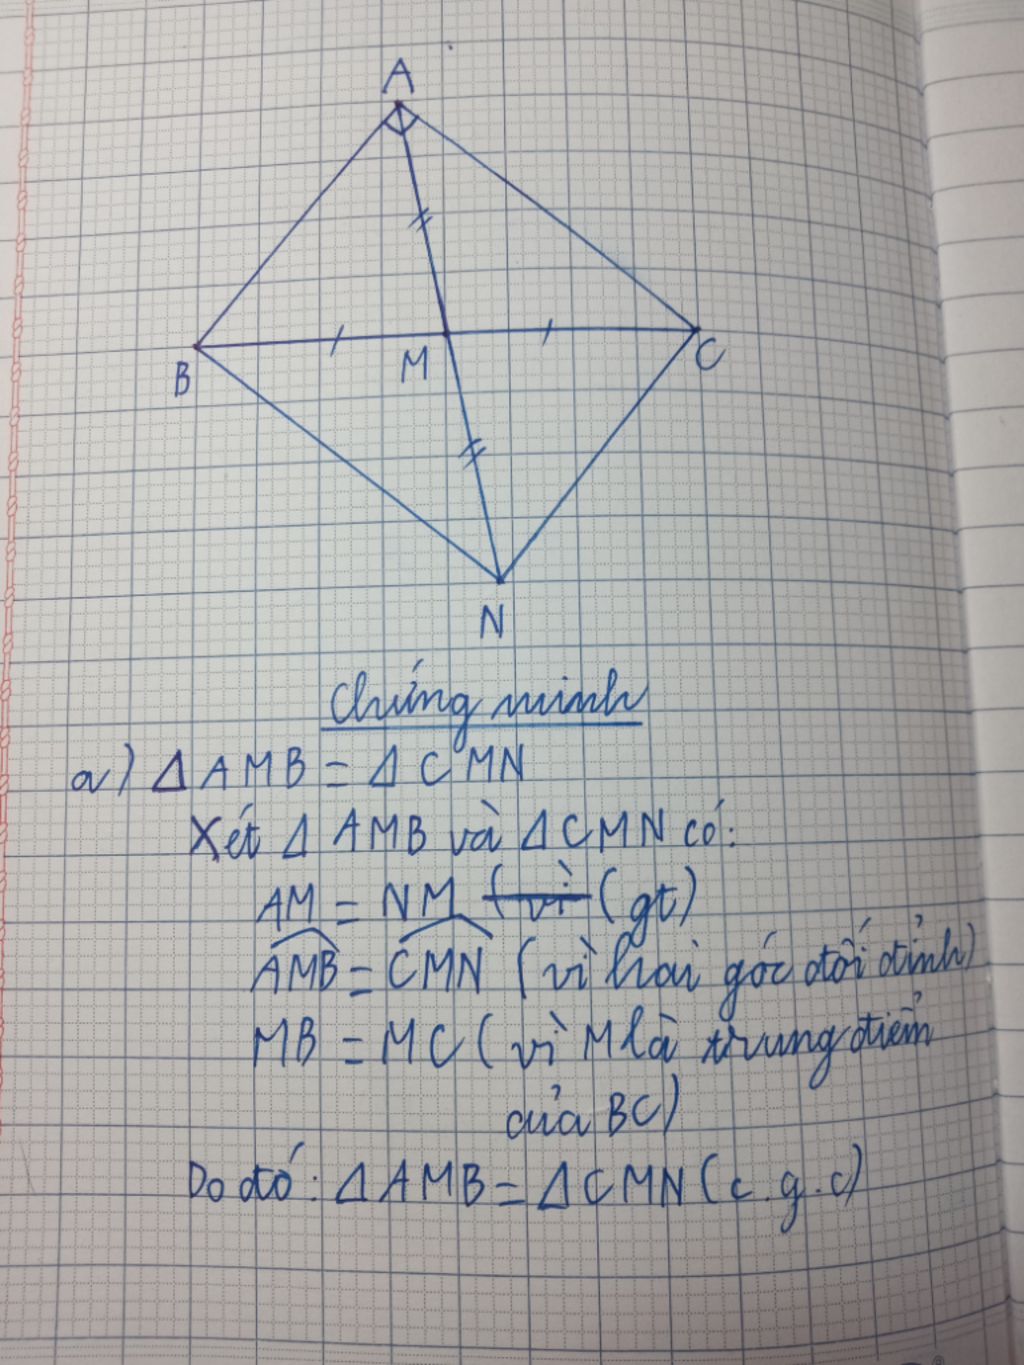 A
B
M
C
N
Chứng minh
a) Δ AMB = Δ CMN
Xét Δ AMB và Δ CMN có:
AM = NM (vì (gt)
AMB = CMN (vì hai góc đối đỉnh)
MB = MC (vì M là trung điểm
của BC)
Do đó: Δ AMB = Δ CMN (c.g.c)